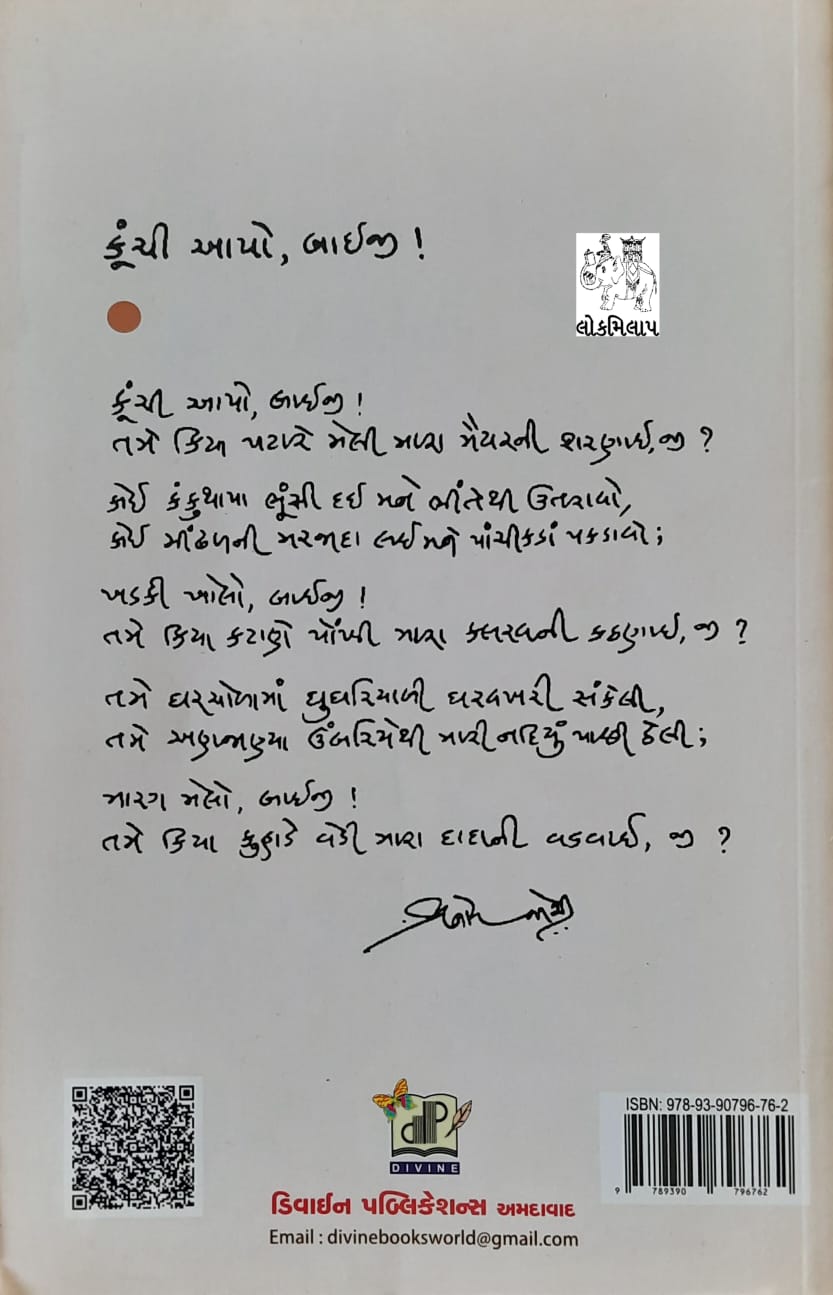 કૂંચી આપો, બાઈજી !
લોકમિલાપ
કૂંચી આપો, બાઈજી !
તમે કિયા પટારે મેલી મારા મૈયરની શરણાઈ, જી ?
કોઈ કંકુથાપા ભૂંસી દઈ મને ભીંતેથી ઉતરાવો,
કોઈ મીંઢળની મરજાદા લઈ મને પાંચીકડાં પકડાવો;
ખડકી ખોલો, બાઈજી !
તમે કિયા કટાણે પોંખી મારા કલરવની કઠણાઈ, જી ?
તમે ઘરચોળામાં ઘુઘરિયાળી ઘરવખરી સંકેલી,
તમે અણજાણ્યા ઉંબરિયેથી મારી નદિયું પાછી ઠેલી;
મારગ મેલો, બાઈજી !
તમે કિયા કુહાડે વેડી મારા દાદાની વડવાઈ, જી ?
dP
DIVINE
ISBN: 978-93-90796-76-2
9 789390 796762
ડિવાઈન પબ્લિકેશન્સ અમદાવાદ
Email : divinebooksworld@gmail.com